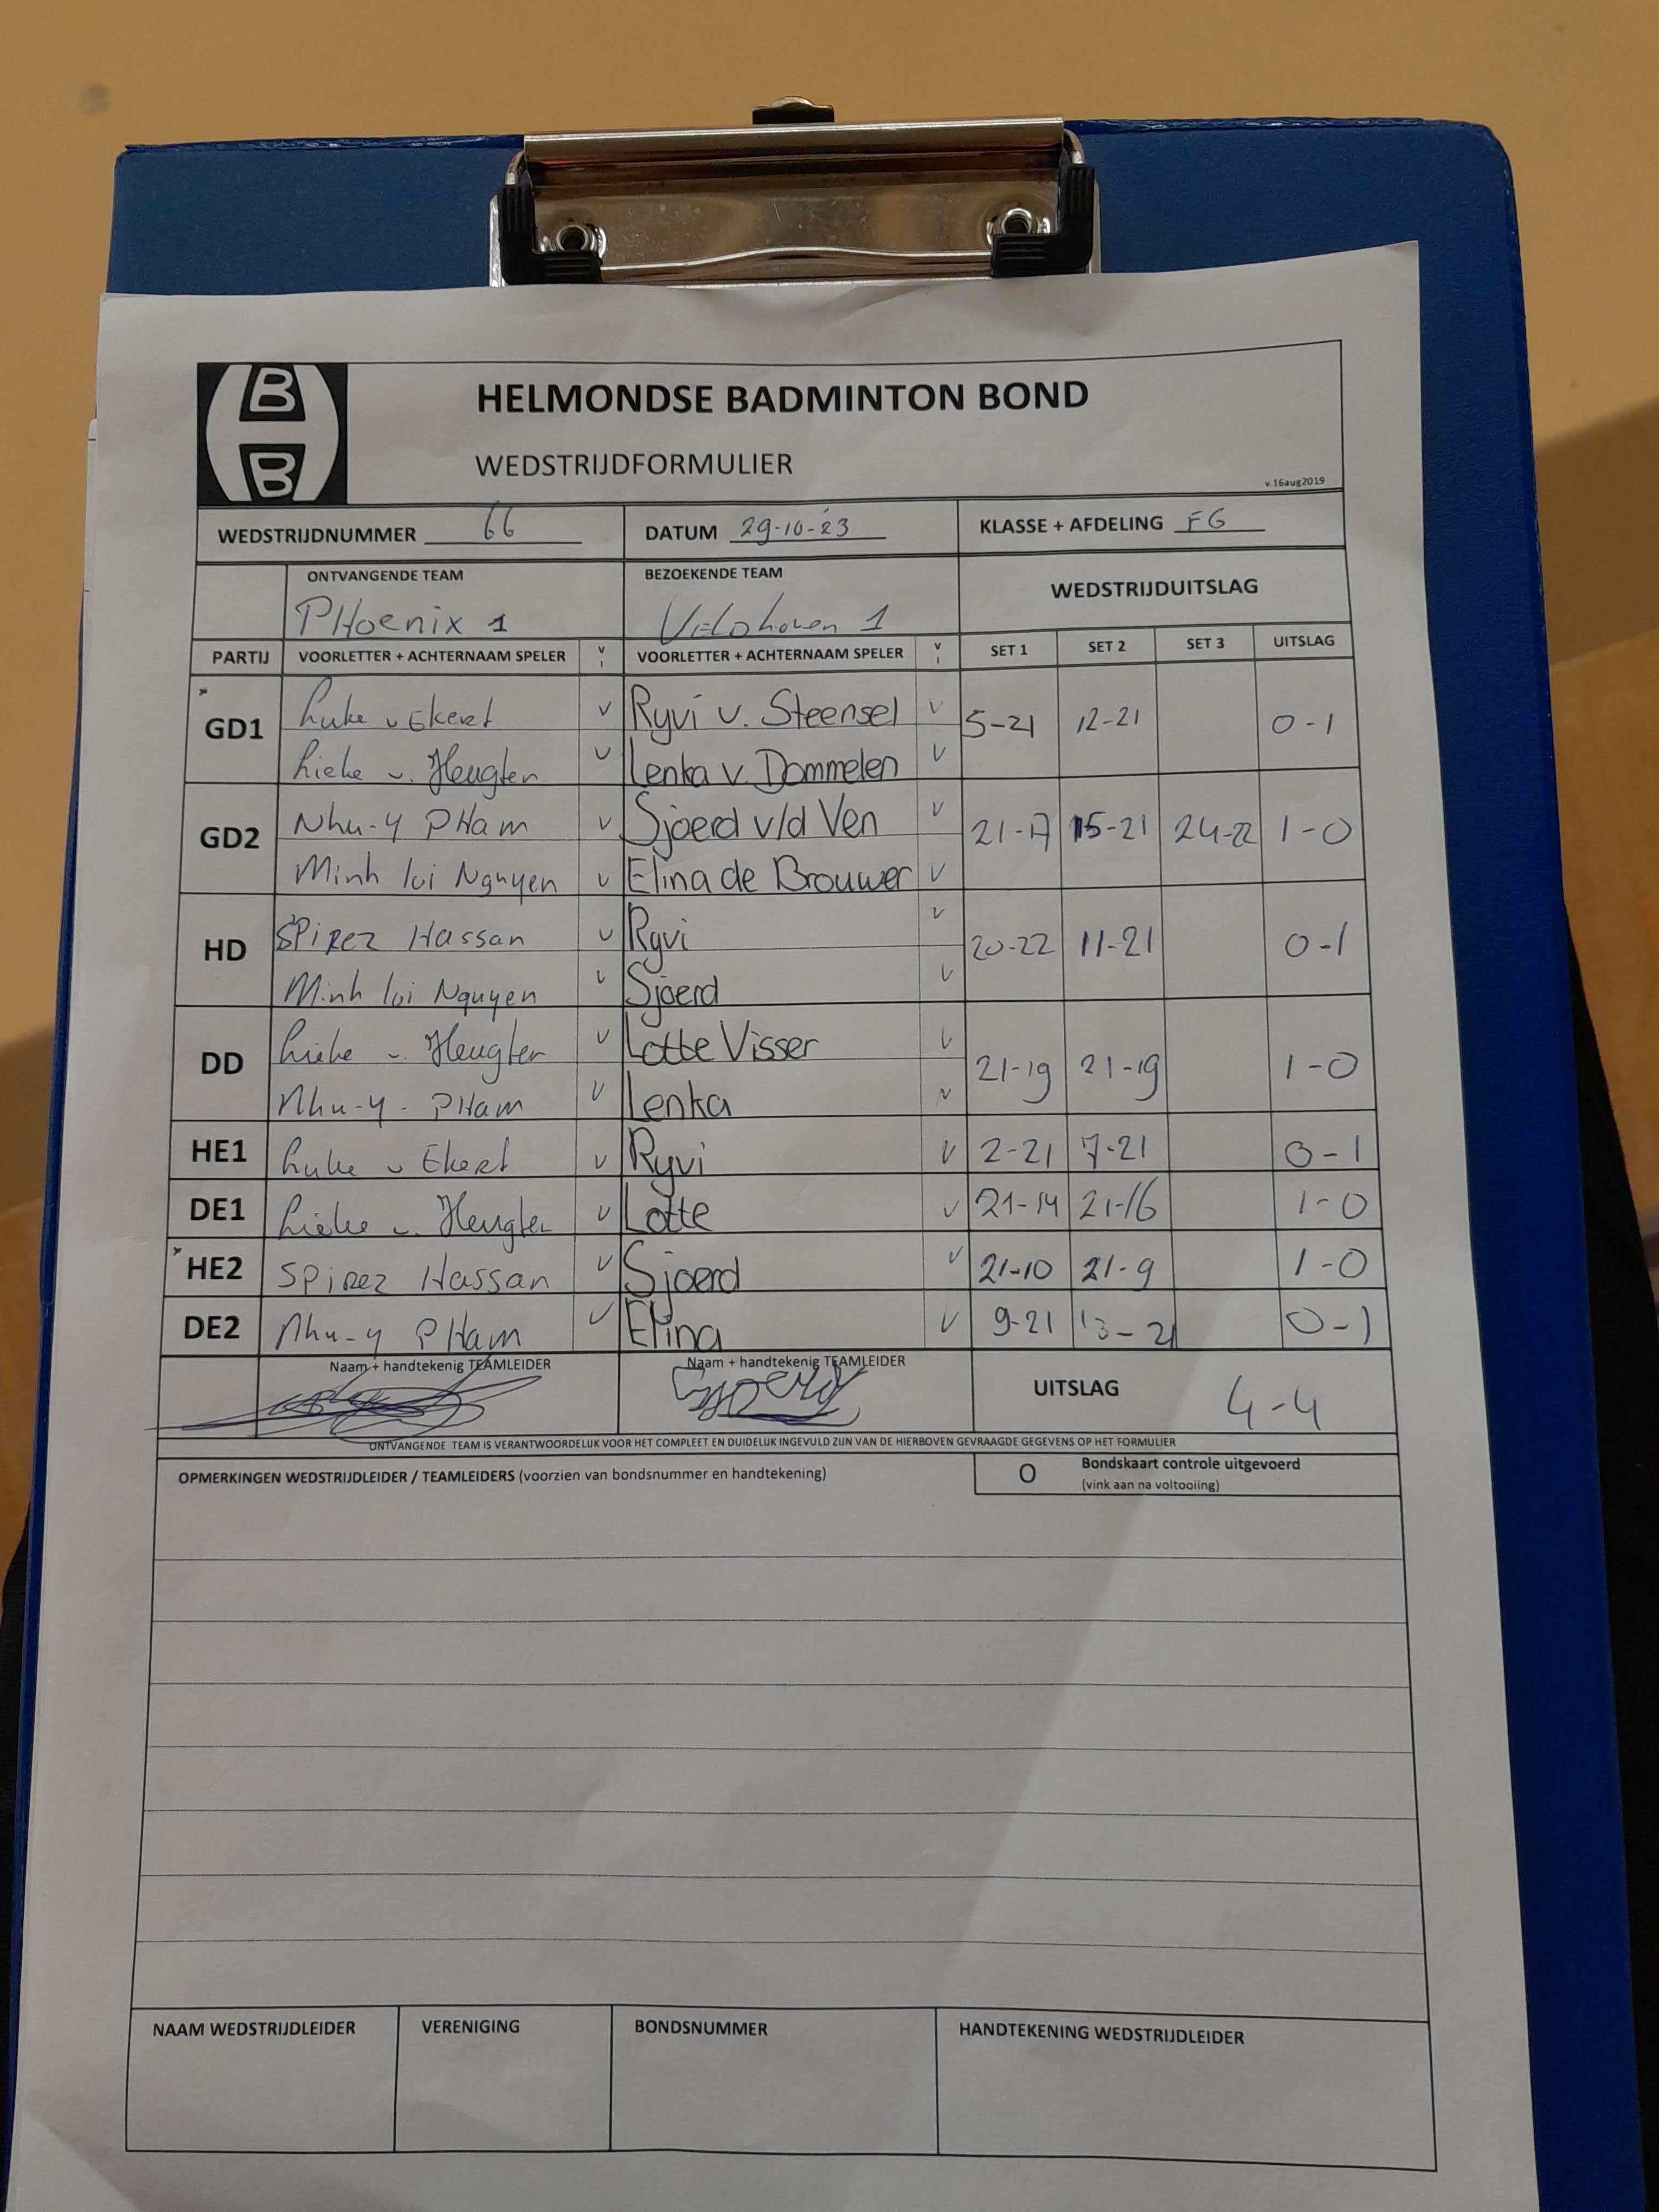 B
B
HELMONDSE BADMINTON BOND
WEDSTRIJDFORMULIER
v.16aug2019
WEDSTRIJDNUMMER 66 DATUM 29-10-23 KLASSE + AFDELING FG
ONTVANGENDE TEAM BEZOEKENDE TEAM WEDSTRIJDUITSLAG
PHoenix 1 Veldhoven 1
PARTIJ VOORLETTER + ACHTERNAAM SPELER V I VOORLETTER + ACHTERNAAM SPELER V I SET 1 SET 2 SET 3 UITSLAG
GD1 Luke v Ekert v Ryvi v. Steensel v 5-21 12-21 0-1
Lieke v. Heugten v Lenka v. Dommelen v
GD2 Nhu-y PHam v Sjoerd v/d Ven v 21-17 15-21 24-22 1-0
Minh loi Nguyen v Elina de Brouwer v
HD SPirez Hassan v Ryvi v 20-22 11-21 0-1
Minh loi Nguyen v Sjoerd v
DD Lieke v Heugten v Lotte Visser v 21-19 21-19 1-0
Nhu-y- PHam v Lenka v
HE1 Luke v Ekert v Ryvi v 2-21 7-21 0-1
DE1 Lieke v. Heugten v Lotte v 21-14 21-16 1-0
HE2 SPirez Hassan v Sjoerd v 21-10 21-9 1-0
DE2 Nhu-y PHam v Elina v 9-21 13-21 0-1
Naam + handtekenig TEAMLEIDER Naam + handtekenig TEAMLEIDER
Sjoerd
UITSLAG 4-4
ONTVANGENDE TEAM IS VERANTWOORDELIJK VOOR HET COMPLEET EN DUIDELIJK INGEVULD ZIJN VAN DE HIERBOVEN GEVRAAGDE GEGEVENS OP HET FORMULIER
OPMERKINGEN WEDSTRIJDLEIDER / TEAMLEIDERS (voorzien van bondsnummer en handtekening)
O Bondskaart controle uitgevoerd
(vink aan na voltooiing)
NAAM WEDSTRIJDLEIDER VERENIGING BONDSNUMMER HANDTEKENING WEDSTRIJDLEIDER